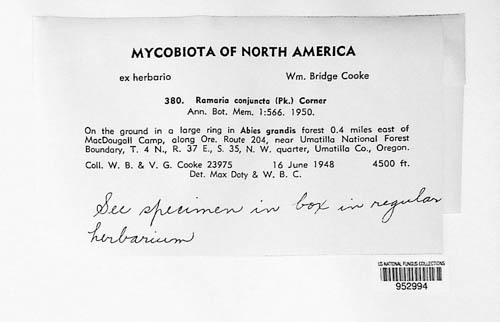 MYCOBIOTA OF NORTH AMERICA
ex herbario Wm. Bridge Cooke
380. Ramaria conjuncta (Pk.) Corner
Ann. Bot. Mem. 1:566. 1950.
On the ground in a large ring in Abies grandis forest 0.4 miles east of
MacDougall Camp, along Ore. Route 204, near Umatilla National Forest
Boundary, T. 4 N., R. 37 E., S. 35, N. W. quarter, Umatilla Co., Oregon.
Coll. W. B. & V. G. Cooke 23975 16 June 1948 4500 ft.
Det. Max Doty & W. B. C.
See specimen in box in regular
herbarium
US NATIONAL FUNGUS COLLECTIONS
952994